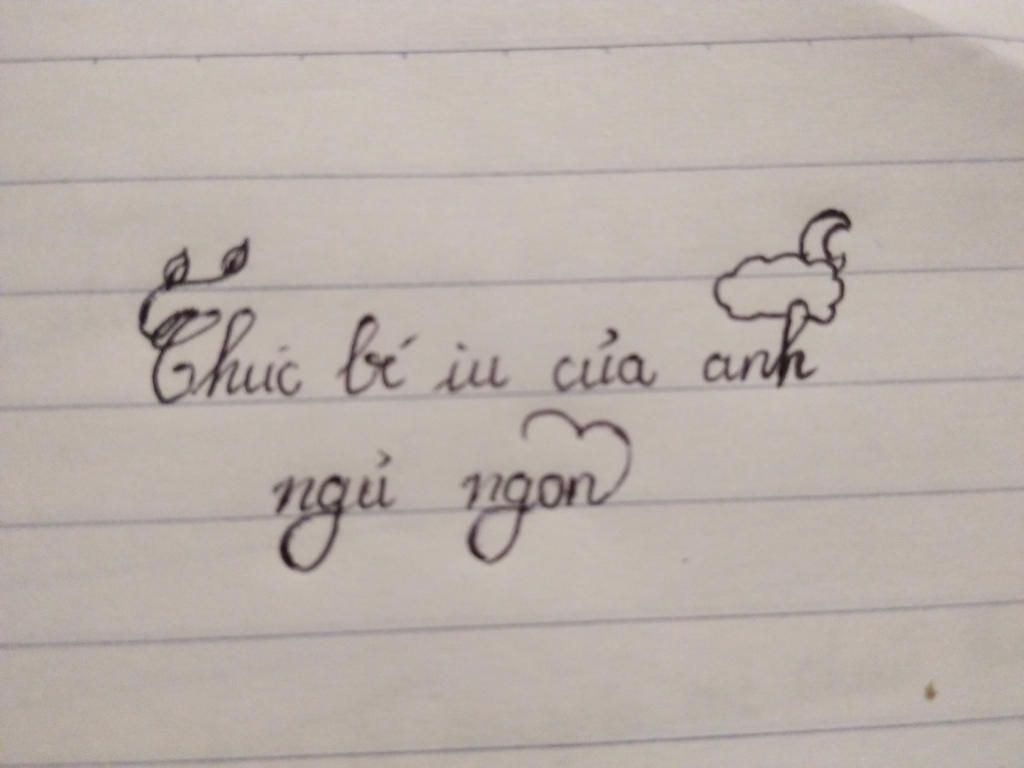 Thúc bé iu của anh
ngủ ngon